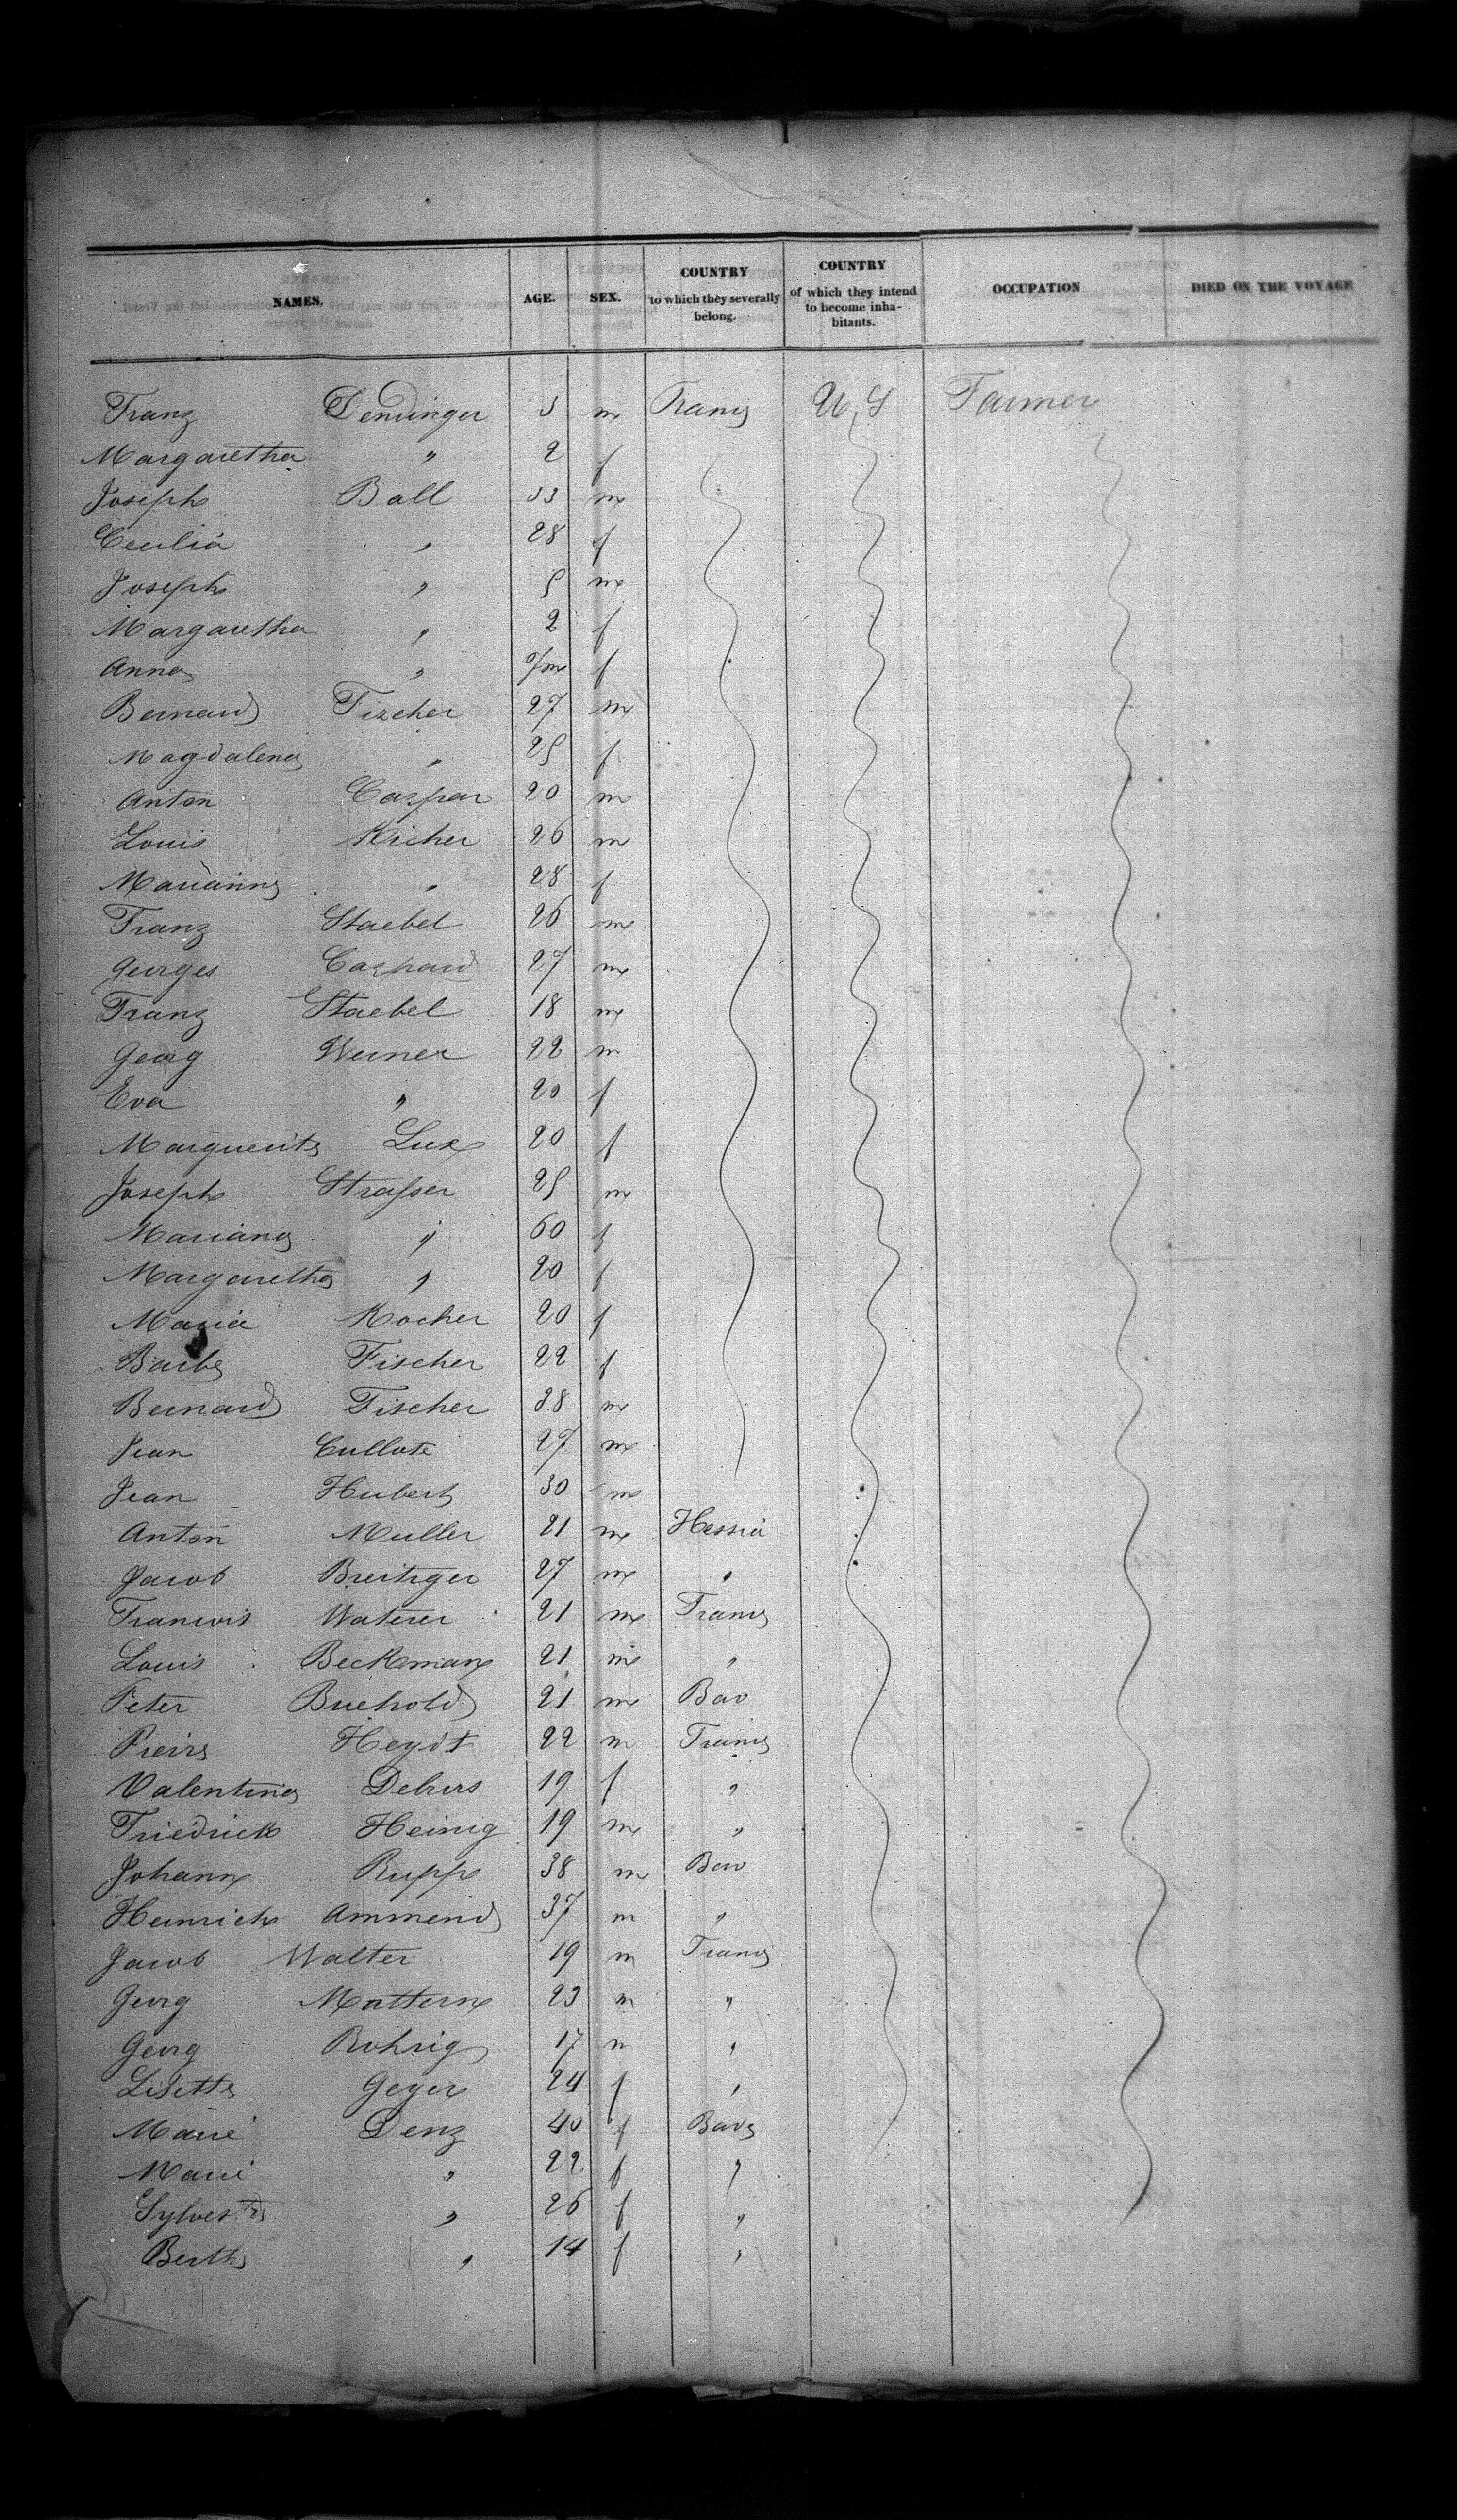 NAMES. AGE. SEX. COUNTRY to which they severally belong. COUNTRY of which they intend to become inhabitants. OCCUPATION DIED ON THE VOYAGE
Franz Denninger 3 m France U.S Farmer
Margaretha " 2 f
Joseph Ball 33 m
Cecilia " 28 f
Joseph " 5 m
Margaretha " 2 f
Anna " f
Bernard Fischer 27 m
Magdalena " 25 f
Anton Caspar 20 m
Louis Richer 26 m
Marianne " 28 f
Franz Staebel 26 m
Georges Caspard 27 m
Franz Staebel 18 m
Georg Werner 22 m
Eva " 20 f
Marguerite Lux 20 f
Joseph Strasser 25 m
Mariana " 60 f
Margaretha " 20 f
Maria Kocher 20 f
Barbe Fischer 22 f
Bernard Fischer 38 m
Jean Cullote 27 m
Jean Hubert 30 m
Anton Muller 21 m Hessia
Jacob Breitiger 27 m "
Francois Waterer 21 m France
Louis Beckmann 21 m "
Peter Buchold 21 m Bav
Pierre Heydt 22 m France
Valentina 19 f "
Friedrich Heinig 19 m "
Johann Rupp 38 m Bav
Heinrich Ammend 37 m "
Jacob Walter 19 m France
Georg Mattern 23 m "
Georg Rohrig 17 m "
Lisette Geyer 24 f "
Marie Denz 40 f
Marie " 22 f "
" 26 f "
Bertha " 14 f "